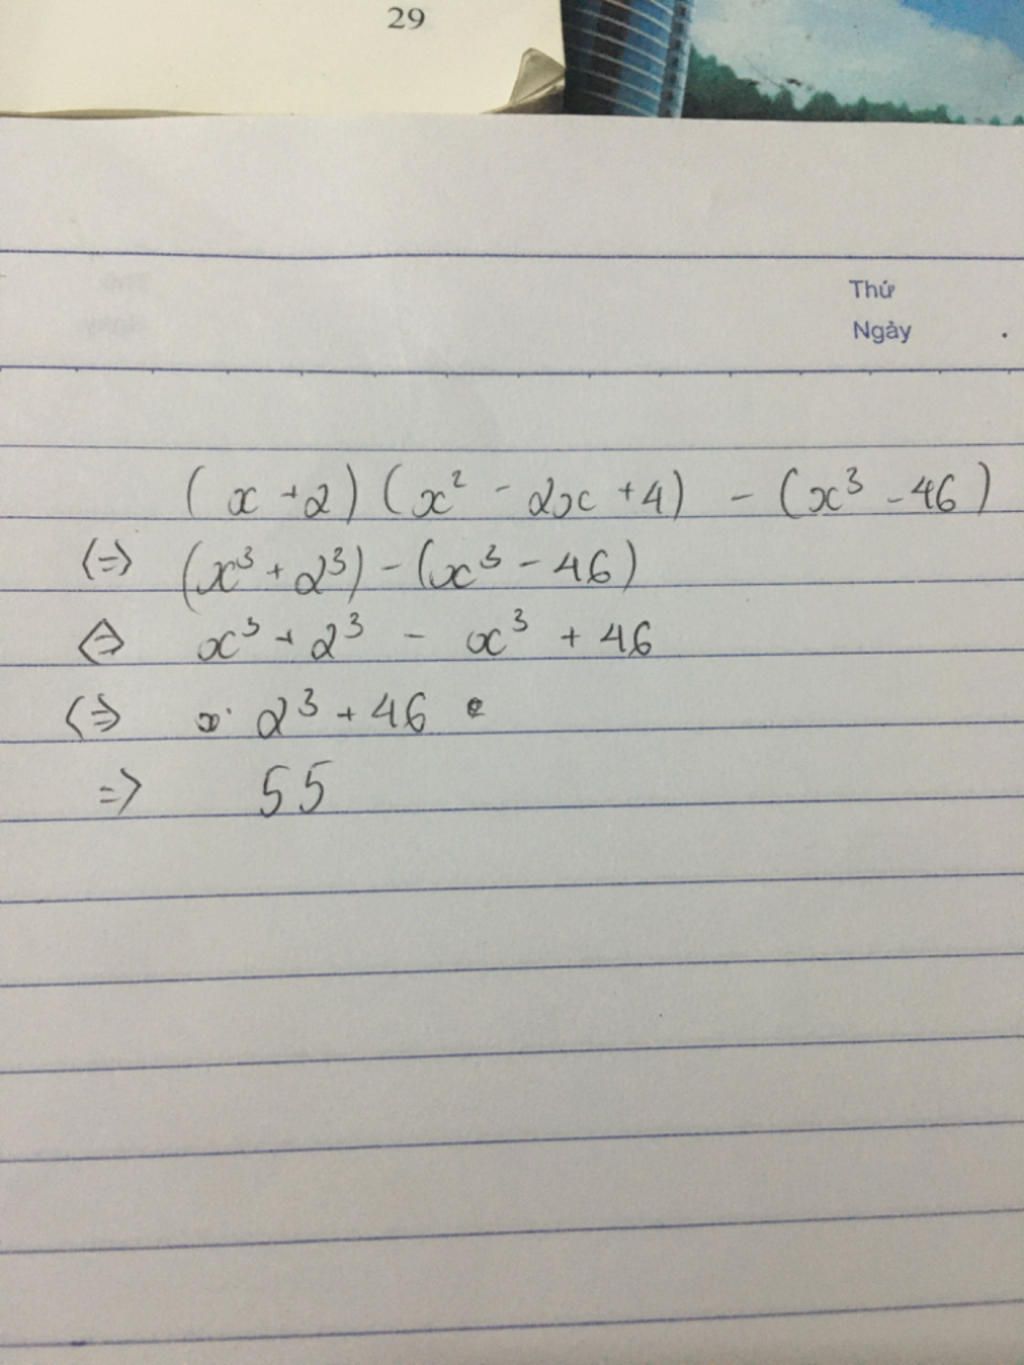 29
Thứ
Ngày
(x + 2) (x² - 2x + 4) - (x³ - 46)
<=> (x³ + 2³) - (x³ - 46)
<=> x³ + 2³ - x³ + 46
<=> 2³ + 46
=> 55